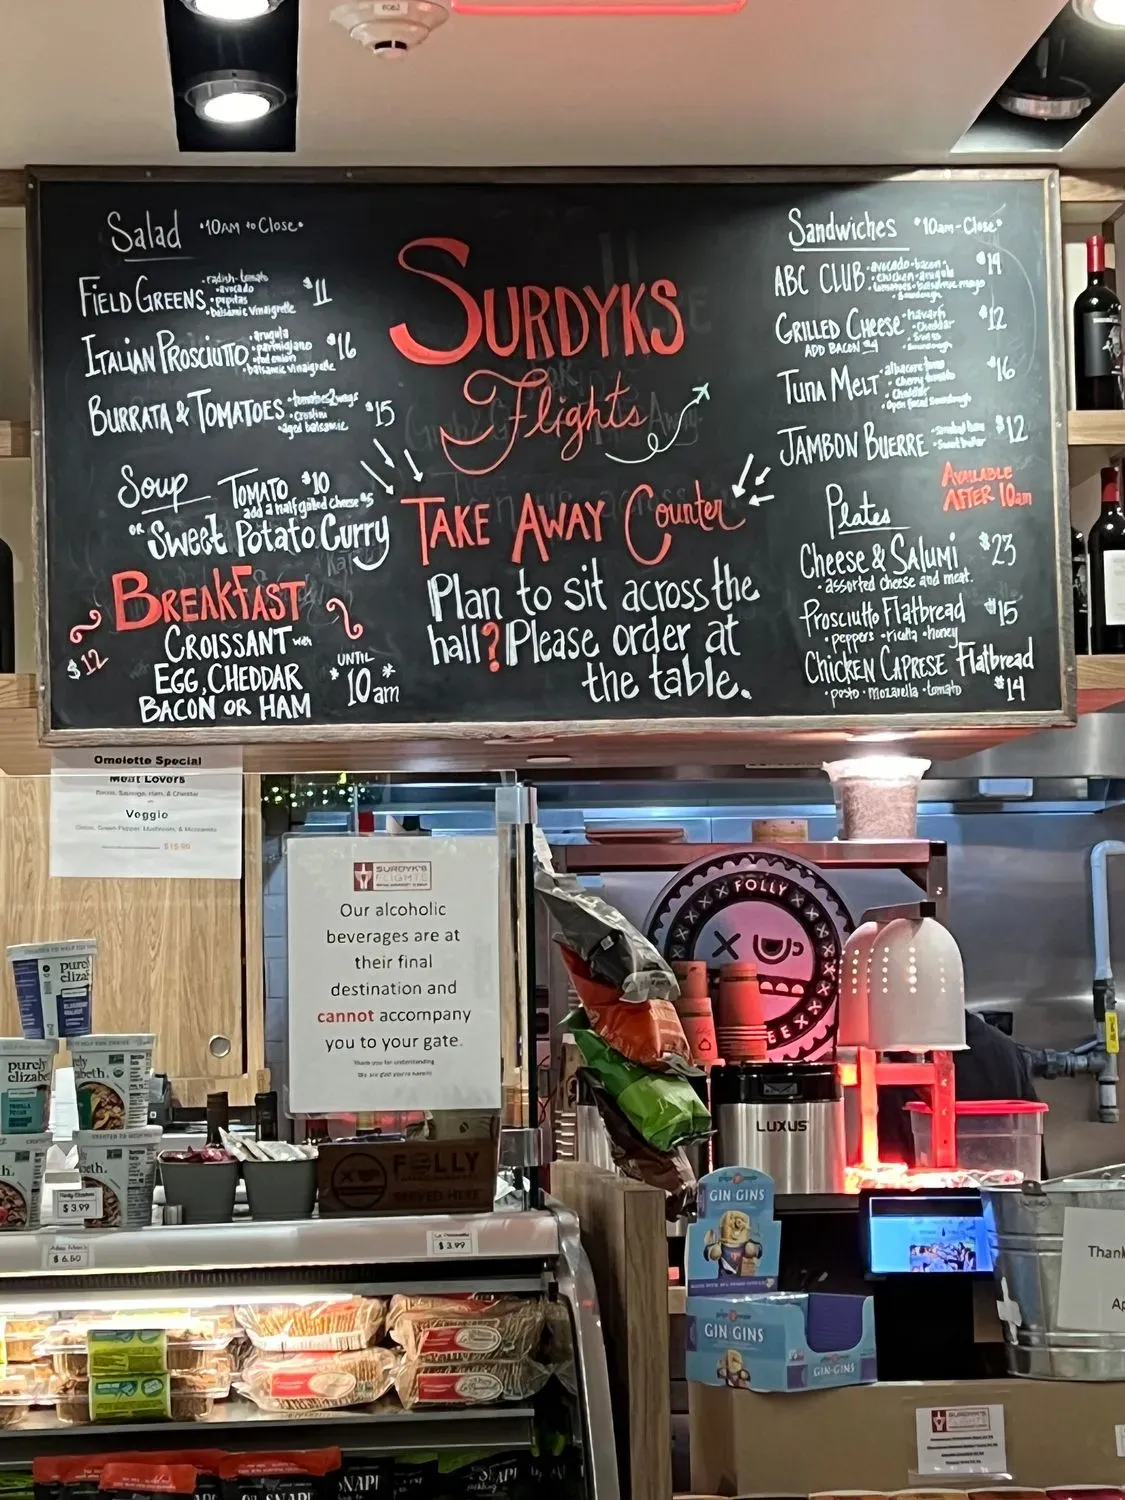 Salad •10AM to Close•
FIELD GREENS •radish•tomato $11
•avocado
•pepitas
•balsamic vinaigrette
ITALIAN PROSCIUTTO •arugula $16
•parmigiano
•red onion
•balsamic vinaigrette
BURRATA & TOMATOES •tomatoes 2 ways $15
•crostini
•aged balsamic
Soup TOMATO $10
add a half grilled cheese $5
OR SWEET POTATO CURRY
BREAKFAST
$12
CROISSANT with
EGG, CHEDDAR
BACON OR HAM
UNTIL
*10am*
SURDYKS
Flights
TAKE AWAY Counter
Plan to sit across the
hall? Please order at
the table.
Sandwiches •10am-Close•
ABC CLUB •avocado•bacon• $14
•chicken•arugula
tomatoes•balsamic mayo
•Sourdough
GRILLED CHEESE •havarti $12
•Cheddar
•Sourdough
ADD BACON $4
TUNA MELT •albacore tuna $16
•Cherry tomato
•Cheddar
•Open faced Sourdough
JAMBON BUERRE •Smoked ham $12
•Sweet butter
AVAILABLE
AFTER 10am
Plates
Cheese & SALUMI $23
•assorted cheese and meat.
Prosciutto Flatbread $15
•peppers •ricotta •honey
CHICKEN CAPRESE Flatbread
•pesto •mozarella •tomato $14
Omelette Special
Meat Lovers
Bacon, Sausage, Ham, & Cheddar
or
Veggie
Onion, Green Pepper, Mushroom, & Mozzarella
$15.99
SURDYK'S
FLIGHTS
Our alcoholic
beverages are at
their final
destination and
cannot accompany
you to your gate.
Thank you for understanding
We are glad you're here!!!
FOLLY
LUXUS
purely
elizabeth.
purely
elizabeth.
$ 3.99
$ 6.50
$ 3.99
FOLLY
SERVED HERE
GIN GINS
GIN GINS
GIN-GINS
Thank
SURDYK'S
FLIGHTS
SNAP!